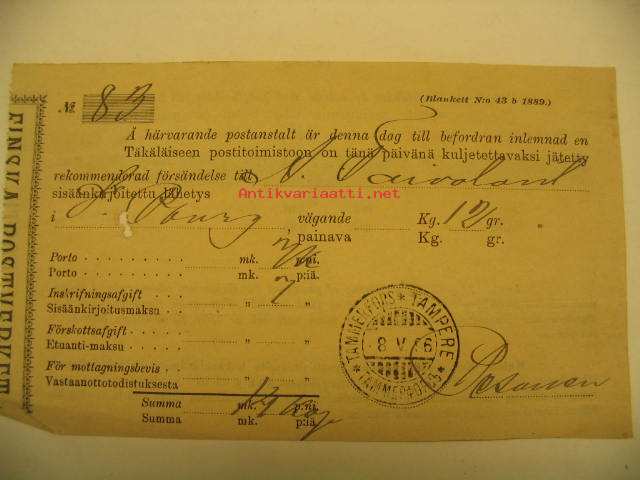 FINSKA POSTVERKET
№ 83
(Blankett N:o 43 b 1889.)
Å härvarande postanstalt är denna dag till befordran inlemnad en
Täkäläiseen postitoimistoon on tänä päivänä kuljetettavaksi jätetty
rekommenderad försändelse till
sisäänkirjoitettu lähetys
Antikvariaatti.net
i vägande Kg. gr.
painava Kg. gr.
Porto mk. p:ni.
Porto mk. p:iä.
Inskrifningsafgift " "
Sisäänkirjoitusmaksu
Förskottsafgift " "
Etuanti-maksu
För mottagningsbevis
Vastaanottotodistuksesta
Summa mk. p:ni.
Summa mk. p:iä.
TAMMERFORS * TAMPERE
8 V 6